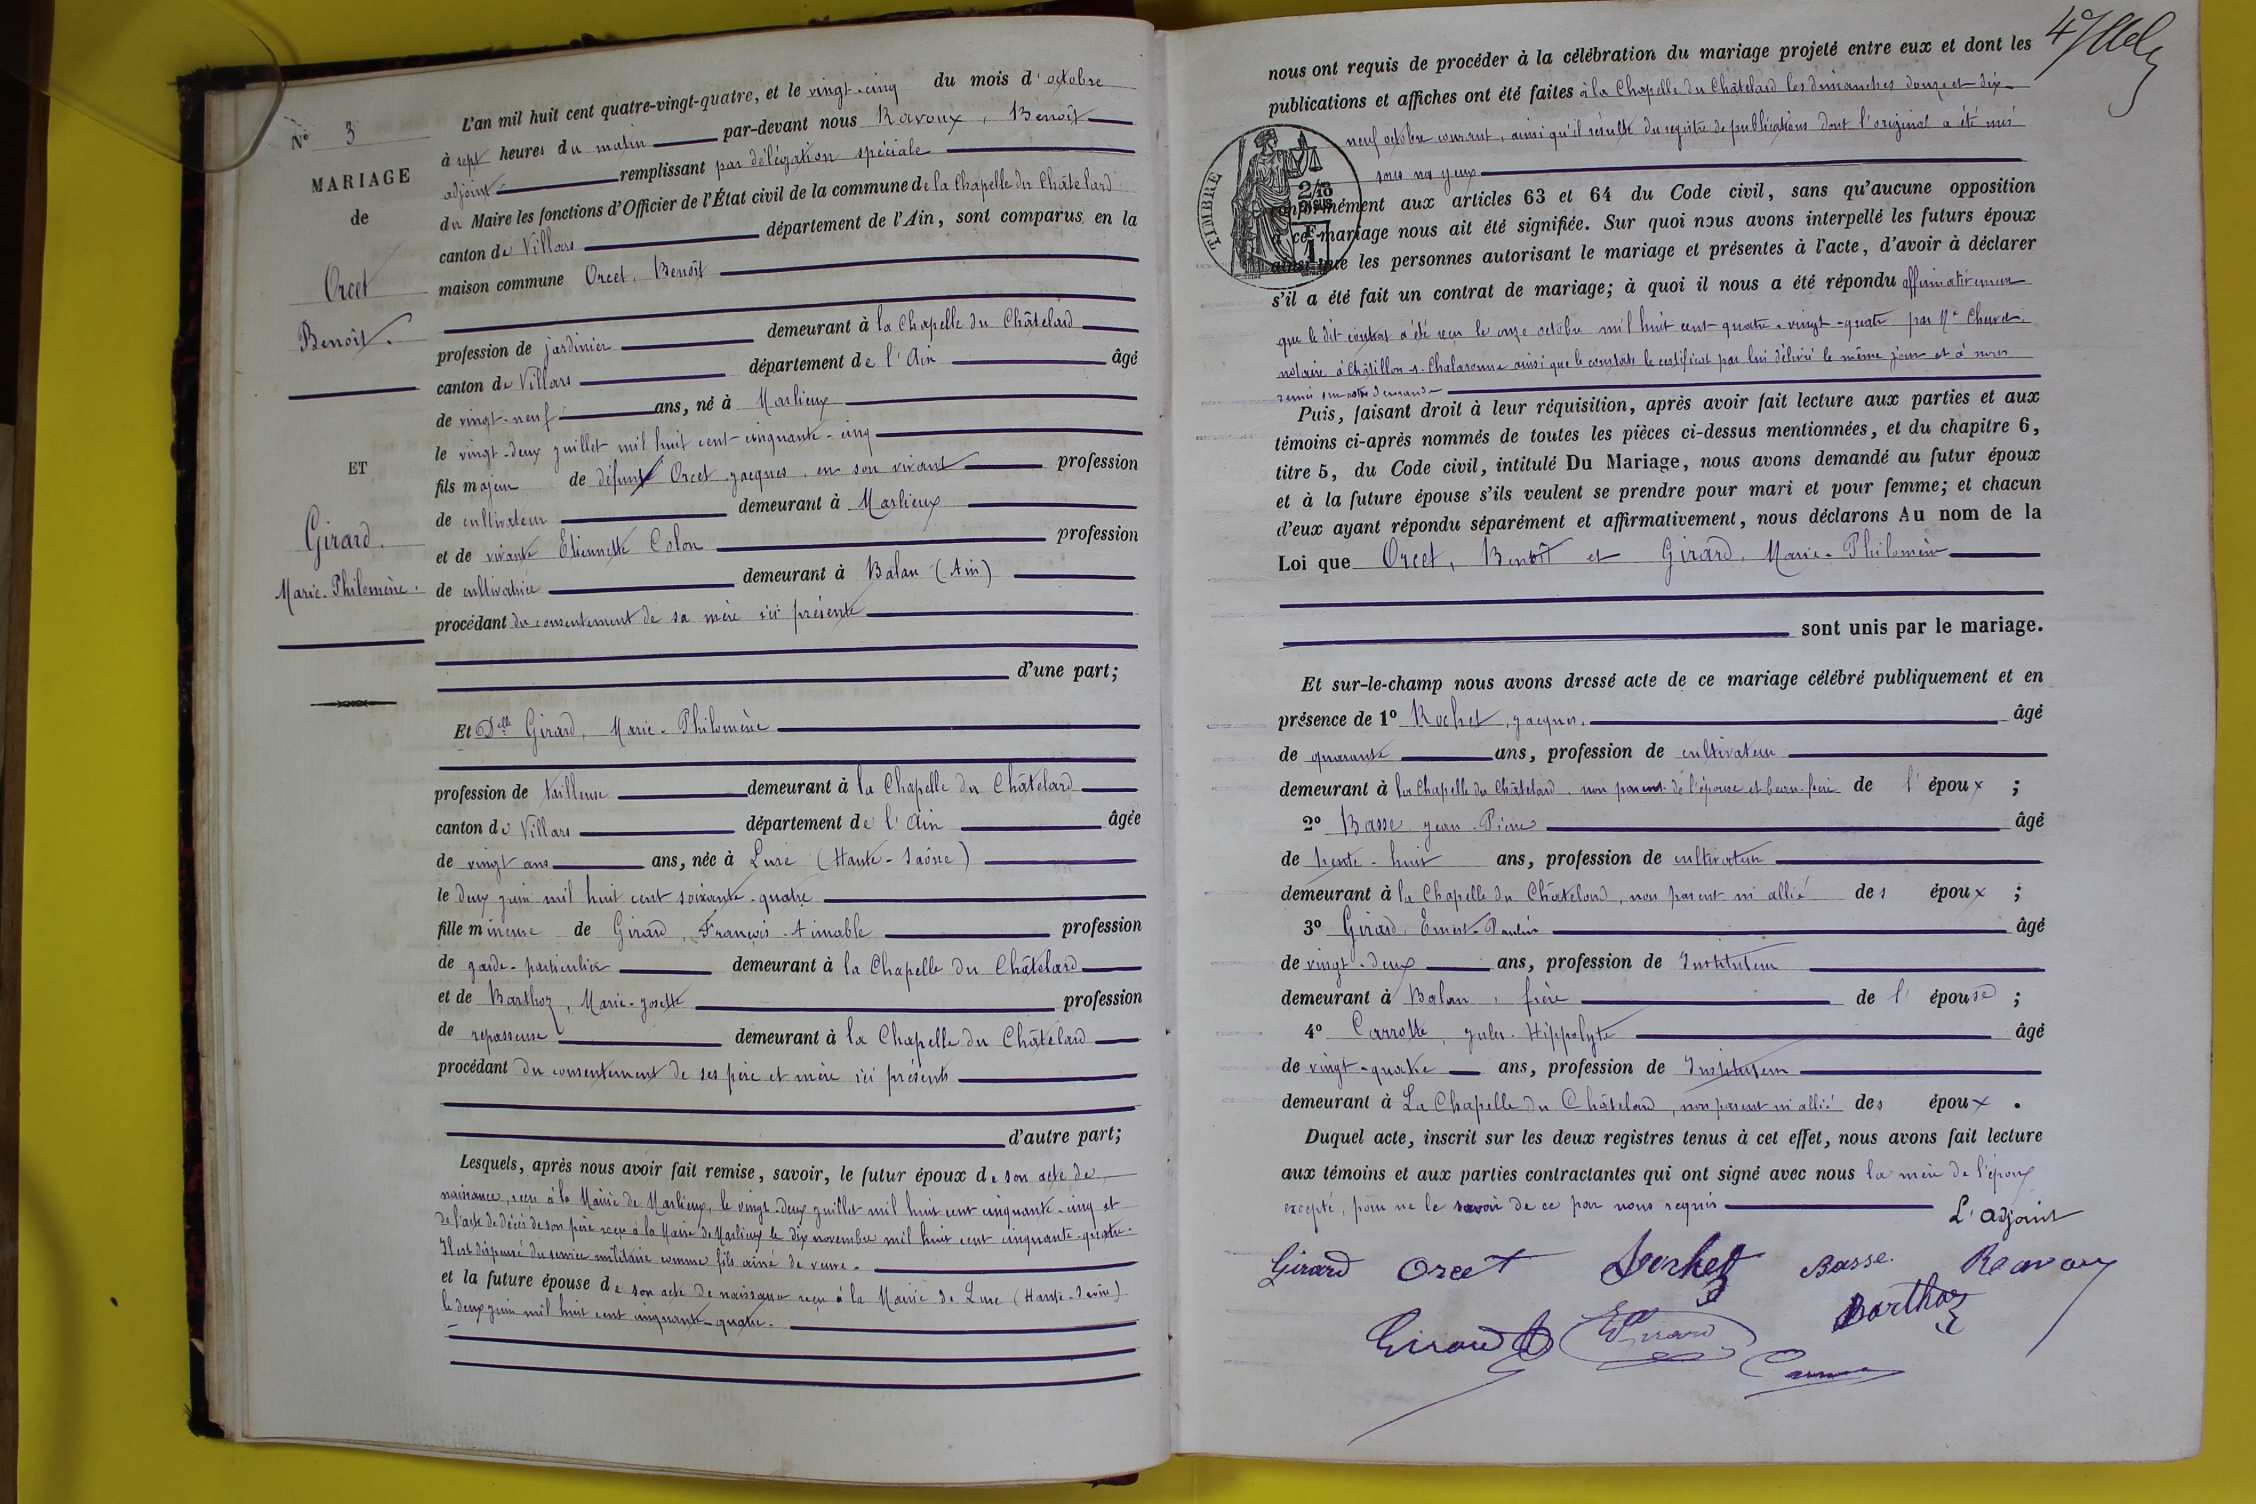 N° 3
MARIAGE
de
Orcet
Benoît.
ET
Girard.
Marie-Philomène.
L'an mil huit cent quatre-vingt-quatre, et le vingt-cinq du mois d'octobre
à sept heures du matin par-devant nous Ravoux, Benoît
adjoint remplissant par délégation spéciale
du Maire les fonctions d'Officier de l'État civil de la commune de la Chapelle du Châtelard
canton de Villars département de l'Ain, sont comparus en la
maison commune Orcet, Benoît
profession de jardinier demeurant à la Chapelle du Châtelard
canton de Villars département de l'Ain âgé
de vingt-neuf ans, né à Marlieux
le vingt-deux juillet mil huit cent cinquante-cinq
fils majeur de défunt Orcet Jacques, en son vivant profession
de cultivateur demeurant à Marlieux
et de vivante Etiennette Colon profession
de cultivatrice demeurant à Balan (Ain)
procédant du consentement de sa mère ici présente
d'une part;
Et Delle Girard, Marie-Philomène
profession de tailleuse demeurant à la Chapelle du Châtelard
canton de Villars département de l'Ain âgée
de vingt ans ans, née à Lure (Haute-Saône)
le deux juin mil huit cent soixante-quatre
fille mineure de Girard, François-Aimable profession
de garde-particulier demeurant à la Chapelle du Châtelard
et de Barthoz, Marie-Josette profession
de repasseuse demeurant à la Chapelle du Châtelard
procédant du consentement de ses père et mère ici présents
d'autre part;
Lesquels, après nous avoir fait remise, savoir, le futur époux de son acte de
naissance, reçu à la Mairie de Marlieux, le vingt-deux juillet mil huit cent cinquante-cinq et
de l'acte de décès de son père reçu à la Mairie de Marlieux le dix novembre mil huit cent cinquante-quatre.
Il est dispensé du service militaire comme fils ainé de veuve.
et la future épouse de son acte de naissance reçu à la Mairie de Lure (Haute-Saône)
le deux juin mil huit cent cinquante-quatre.
nous ont requis de procéder à la célébration du mariage projeté entre eux et dont les
publications et affiches ont été faites à la Chapelle du Châtelard les dimanches douze et dix-
neuf octobre courant, ainsi qu'il résulte du registre de publications dont l'original a été mis
sous nos yeux
TIMBRE
conformément aux articles 63 et 64 du Code civil, sans qu'aucune opposition
à ce mariage nous ait été signifiée. Sur quoi nous avons interpellé les futurs époux
ainsi que les personnes autorisant le mariage et présentes à l'acte, d'avoir à déclarer
s'il a été fait un contrat de mariage; à quoi il nous a été répondu affirmativement
que le dit contrat a été reçu le onze octobre mil huit cent quatre-vingt-quatre par Me
notaire à Châtillon-s-Chalaronne ainsi que le constate le certificat par lui délivré le même jour et à nous
remis sur notre demande
Puis, faisant droit à leur réquisition, après avoir fait lecture aux parties et aux
témoins ci-après nommés de toutes les pièces ci-dessus mentionnées, et du chapitre 6,
titre 5, du Code civil, intitulé Du Mariage, nous avons demandé au futur époux
et à la future épouse s'ils veulent se prendre pour mari et pour femme; et chacun
d'eux ayant répondu séparément et affirmativement, nous déclarons Au nom de la
Loi que Orcet, Benoît et Girard, Marie-Philomène
sont unis par le mariage.
Et sur-le-champ nous avons dressé acte de ce mariage célébré publiquement et en
présence de 1° Rochet, Jacques, âgé
de quarante ans, profession de cultivateur
demeurant à la Chapelle du Châtelard, non parent de l'épouse et beau-frère de l'époux ;
2° Basse Jean-Pierre âgé
de trente-huit ans, profession de cultivateur
demeurant à la Chapelle du Châtelard, non parent ni allié des époux ;
3° Girard, Ernest-Paulin âgé
de vingt-deux ans, profession de Instituteur
demeurant à Balan, frère de l'épouse ;
4° Carrotte, Jules-Hippolyte âgé
de vingt-quatre ans, profession de Instituteur
demeurant à La Chapelle du Châtelard, non parent ni allié des époux .
Duquel acte, inscrit sur les deux registres tenus à cet effet, nous avons fait lecture
aux témoins et aux parties contractantes qui ont signé avec nous la mère de l'époux
excepté, pour ne le savoir de ce par nous requis
L'adjoint
Girard Orcet Basse Ravoux
Girard Girard Barthoz